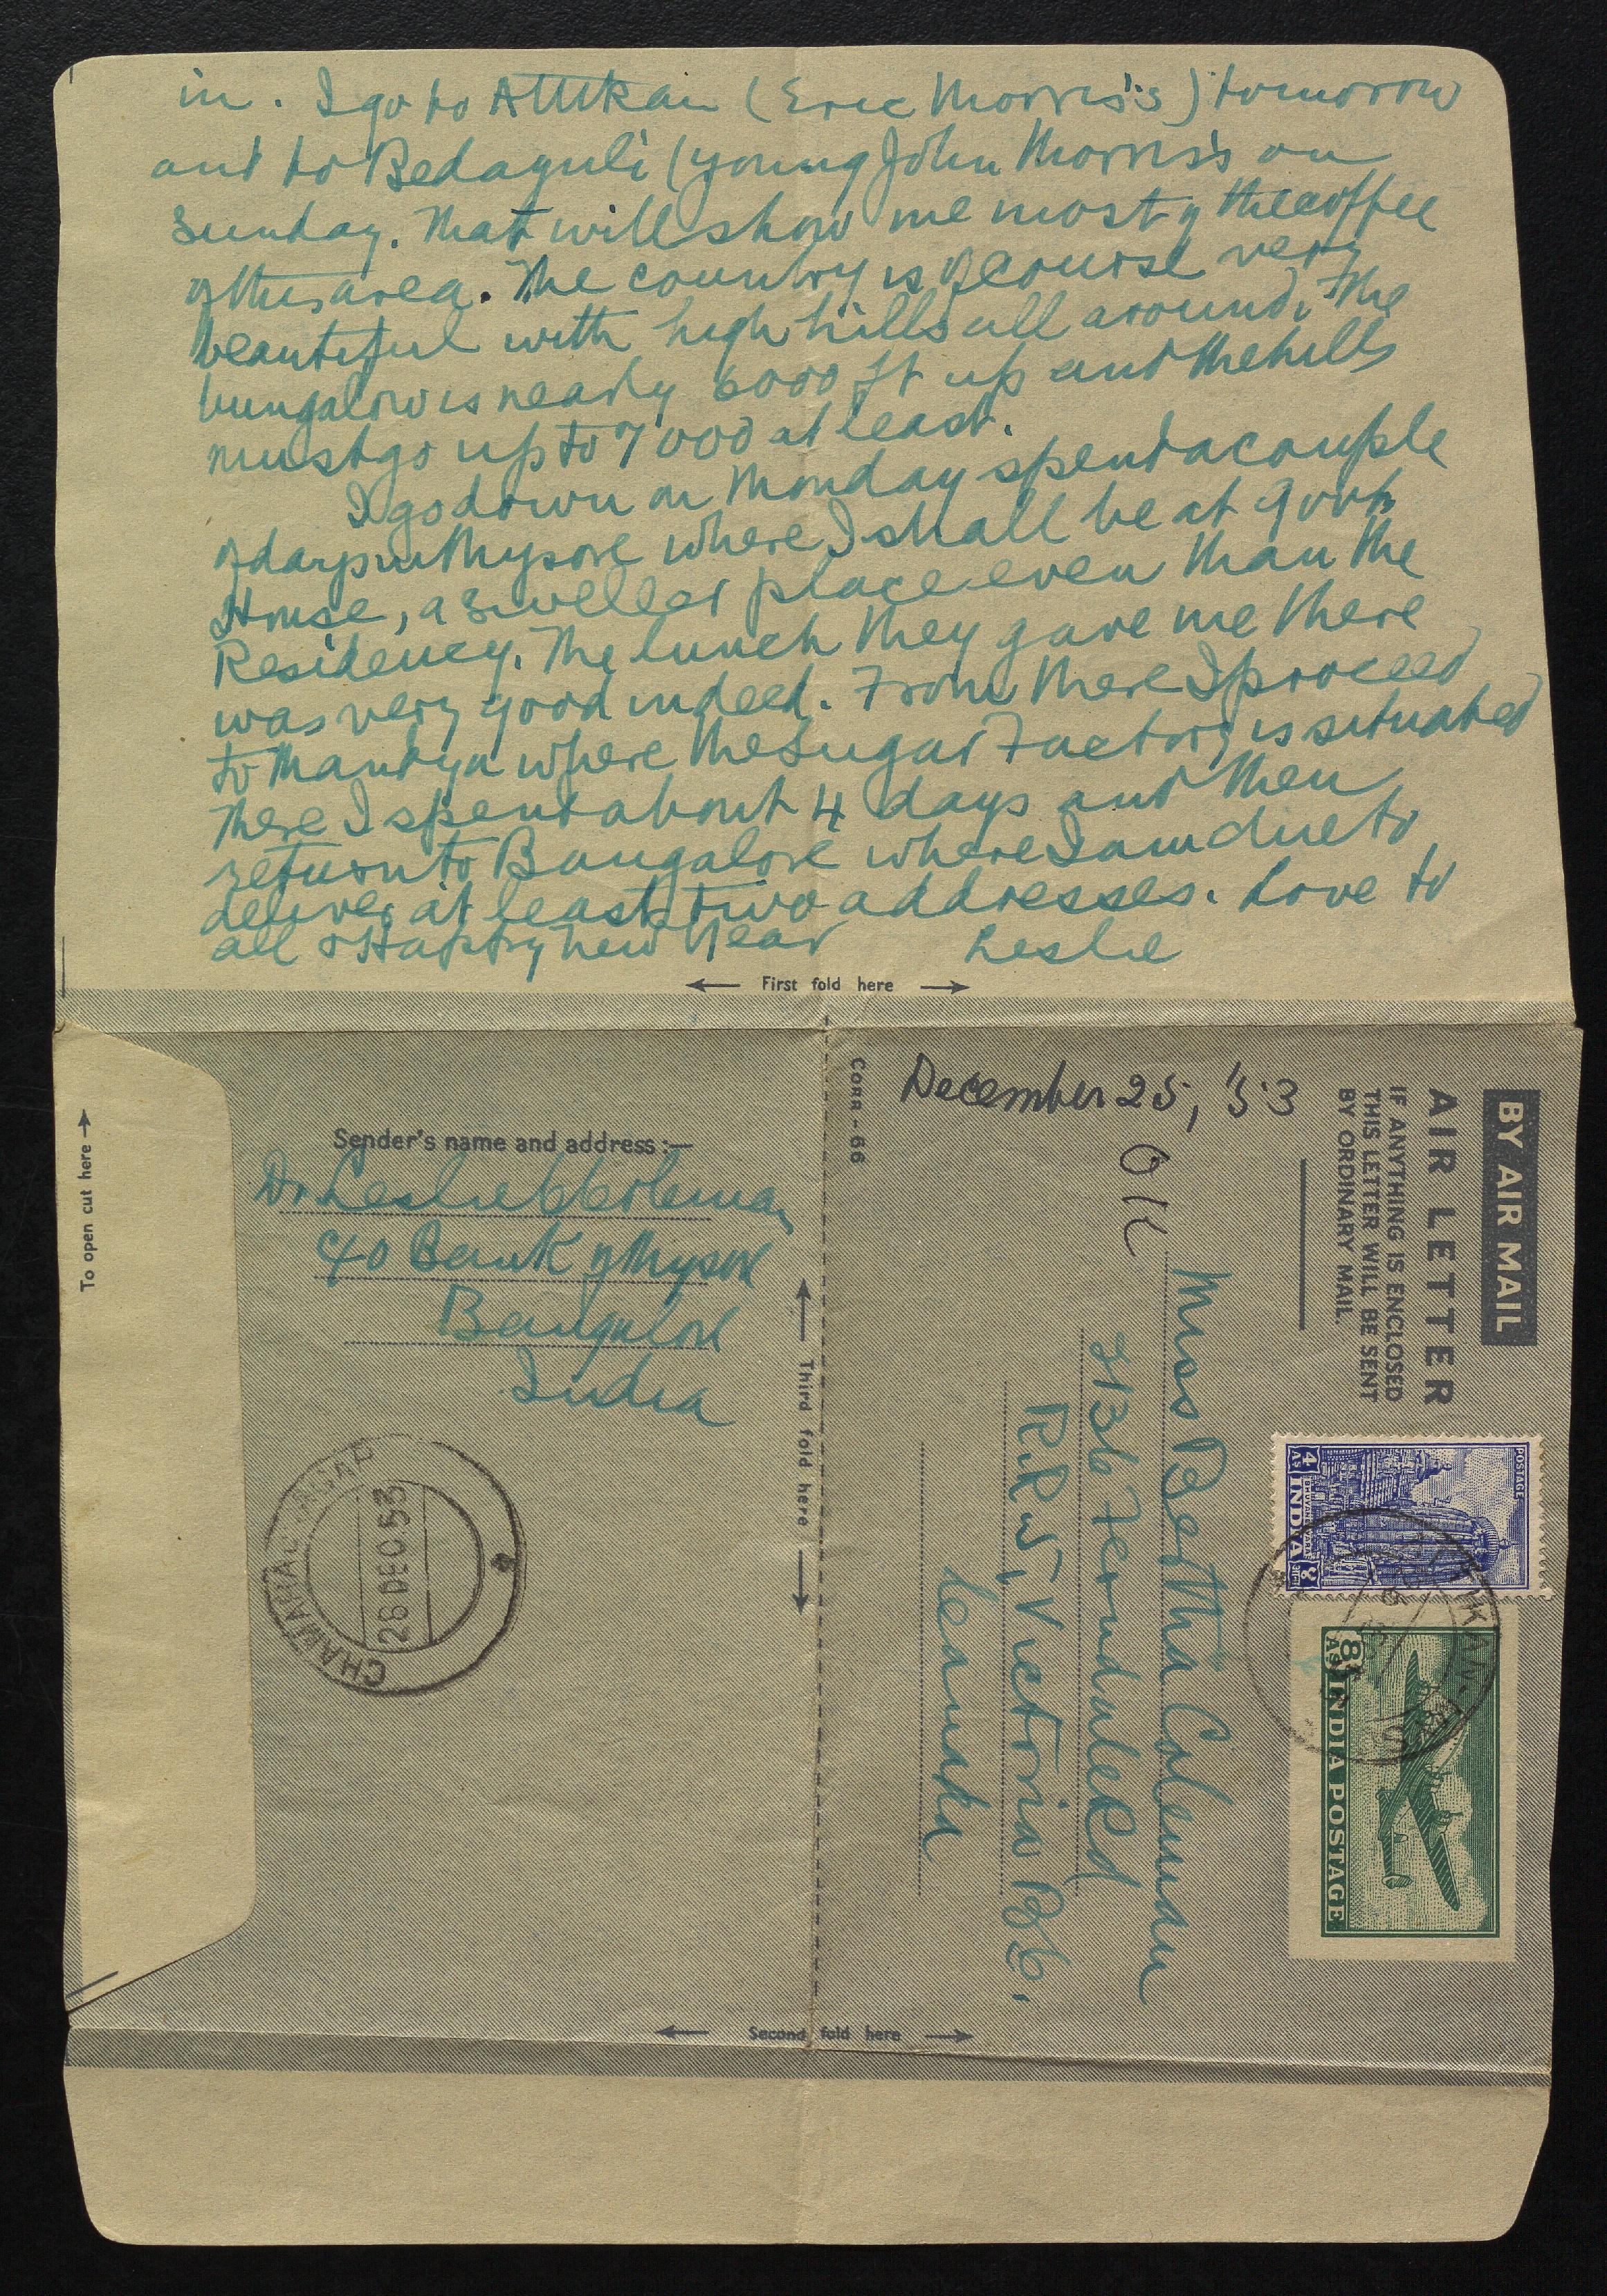 in. I go to Attikan (Eric Morris's) tomorrow
and to Bedaguli (young John Morris's on
Sunday. That will show me most of the coffee
of this area. The country is of course very
beautiful with high hills all around. The
bungalow is nearly 6000 ft up and the hills
must go up to 7000 at least.
I go down on Monday spend a couple
of days in Mysore where I shall be at Govt
House, a sweller place even than the
Residency. The lunch they gave me there
was very good indeed. From there I proceed
to Mandya where the Sugar Factory is situated
There I spend about 4 days and then
return to Bangalore where I am due to
deliver at least two addresses. Love to
all & Happy New Year Leslie
← First fold here →
To open cut here →
Sender's name and address :—
Dr Leslie C Coleman
c/o Bank of Mysore
Bangalore
India
28 DEC 53
← Third fold here →
CORR - 66
December 25, '53
OK
BY AIR MAIL
AIR LETTER
IF ANYTHING IS ENCLOSED
THIS LETTER WILL BE SENT
BY ORDINARY MAIL.
Miss Bertha Coleman
Ferndale Rd
R.R. 1, Victoria B.C.
Canada
POSTAGE
4 AS INDIA
8 AS INDIA POSTAGE
← Second fold here →